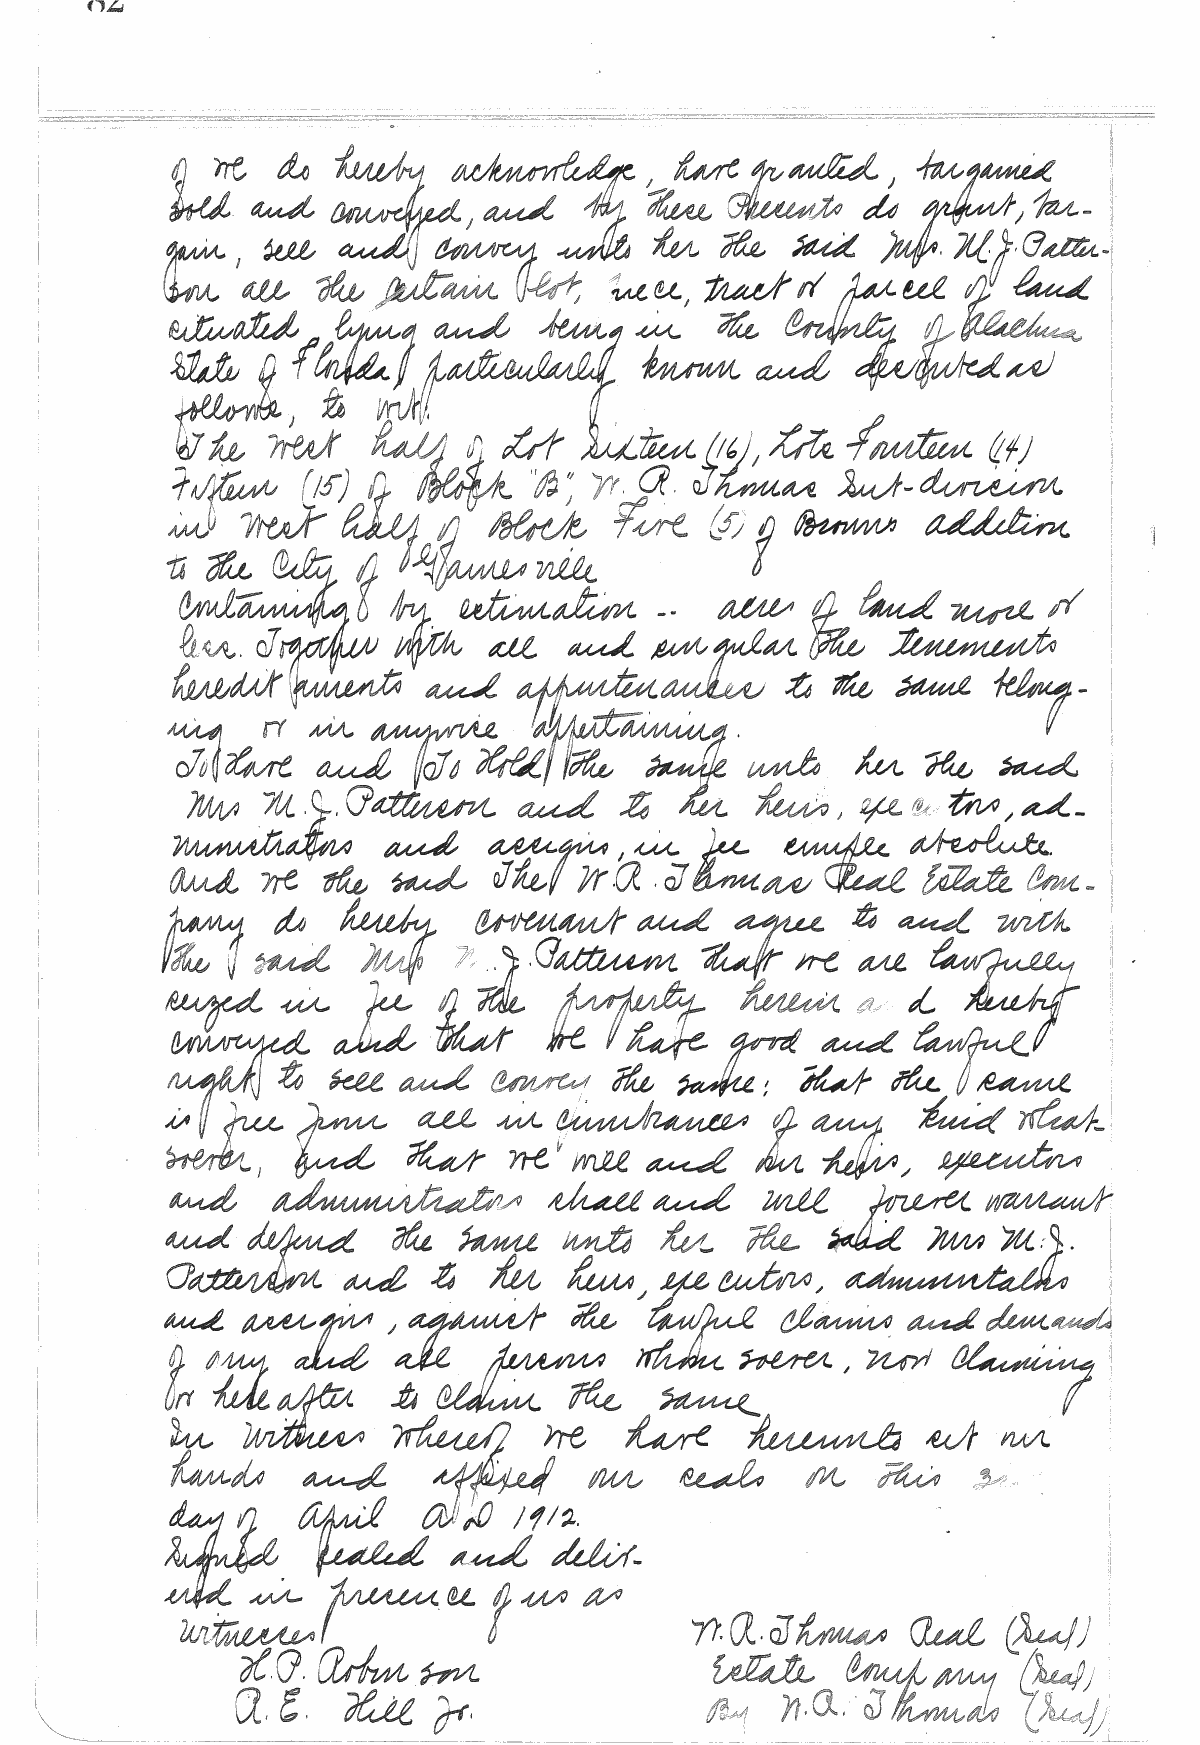 82
of we do hereby acknowledge, have granted, bargained
sold and conveyed, and by these Presents do grant, bar-
gain, sell and convey unto her the said Mrs. M. J. Patter-
son all the certain lot, piece, tract or parcel of land
situated lying and being in the County of Alachua
State of Florida, particularly known and described as
follows, to wit:
The West half of Lot Sixteen (16), Lots Fourteen (14)
Fifteen (15) of Block "B", W. R. Thomas Sub-division
in West half of Block Five (5) of Browns addition
to the City of Gainesville
Containing by estimation -- acres of land more or
less. Together with all and singular the tenements
heredit aments and appurtenances to the same belong-
ing or in anywise appertaining.
To Have and To Hold the same unto her the said
Mrs M. J. Patterson and to her heirs, executors, ad-
ministrators and assigns, in fee simple absolute.
And we the said The W. R. Thomas Real Estate Com-
pany do hereby covenant and agree to and with
the said Mrs M. J. Patterson that we are lawfully
seized in fee of the property herein and hereby
conveyed and that we have good and lawful
right to sell and convey the same; that the same
is free from all incumbrances of any kind what-
soever, and that we will and our heirs, executors
and administrators shall and will forever warrant
and defend the same unto her the said Mrs M. J.
Patterson and to her heirs, executors, administators
and assigns, against the lawful claims and demands
of any and all persons whom soever, now claiming
or hereafter to claim the same
In Witness Whereof we have hereunto set our
hands and affixed our seals on this
day of April A D 1912.
Signed sealed and deliv-
ered in presence of us as
witnesses
H. P. Robinson
A. E. Hill Jr.
W. R. Thomas Real (Seal)
Estate Company (Seal)
By W. R. Thomas (Seal)